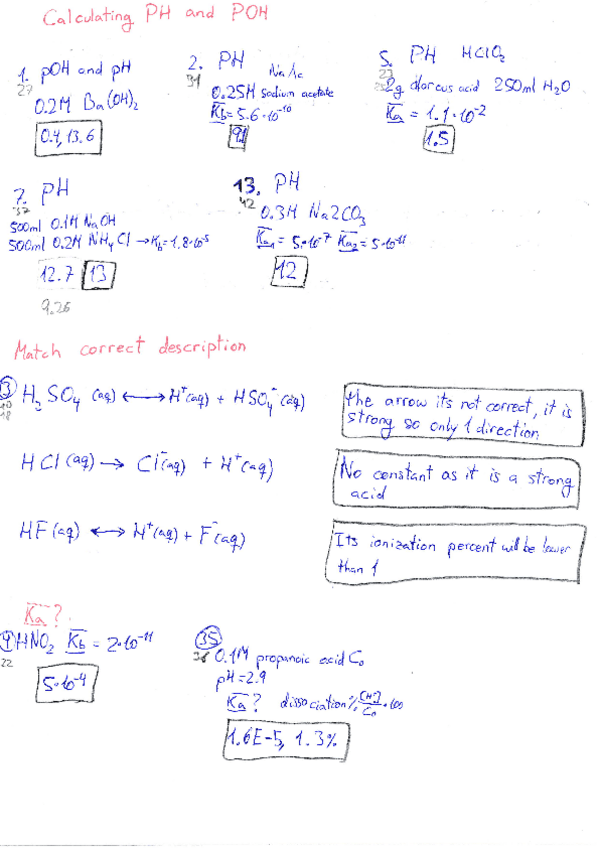 Calculating PH and POH
1. pOH and pH
27
0.2M Ba(OH)₂
0.4, 13.6
2. PH NaAc
31
0.25M sodium acetate
Kb = 5.6·10⁻¹⁰
9.1
5. PH HClO₂
2g clorous acid 250ml H₂O
Ka = 1.1·10⁻²
1.5
7. PH
37
500ml 0.1M NaOH
500ml 0.2M NH₄Cl → Kb = 1.8·10⁻⁵
12.7 13
9.26
13. PH
42
0.3M Na2CO₃
Ka₁ = 5·10⁻⁷ Ka₂ = 5·10⁻¹¹
12
Match correct description
3 H₂SO₄ (aq) ⟷ H⁺(aq) + HSO₄⁻(aq)
18
the arrow its not correct, it is
strong so only 1 direction
HCl (aq) → Cl⁻(aq) + H⁺(aq)
No constant as it is a strong
acid
HF (aq) ⟷ H⁺(aq) + F⁻(aq)
Its ionization percent will be lower
than 1
Ka?
9 HNO₂ Kb = 2·10⁻¹¹
22
5·10⁻⁴
35
0.1M propanoic acid C₀
pH = 2.9
Ka? dissociation % [H⁺]/C₀ · 100
1.6E-5, 1.3%